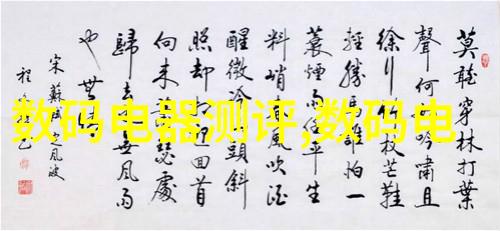 数码电器测评,数码电
莫聽穿林打葉
聲何吟嘯且
徐行竹杖芒鞋
輕勝馬誰怕一
蓑煙雨任平生
料峭風吹酒
醒微冷山頭斜
照却迎回首
向来瑟處
歸去無風雨
也無晴
宋蘇風波